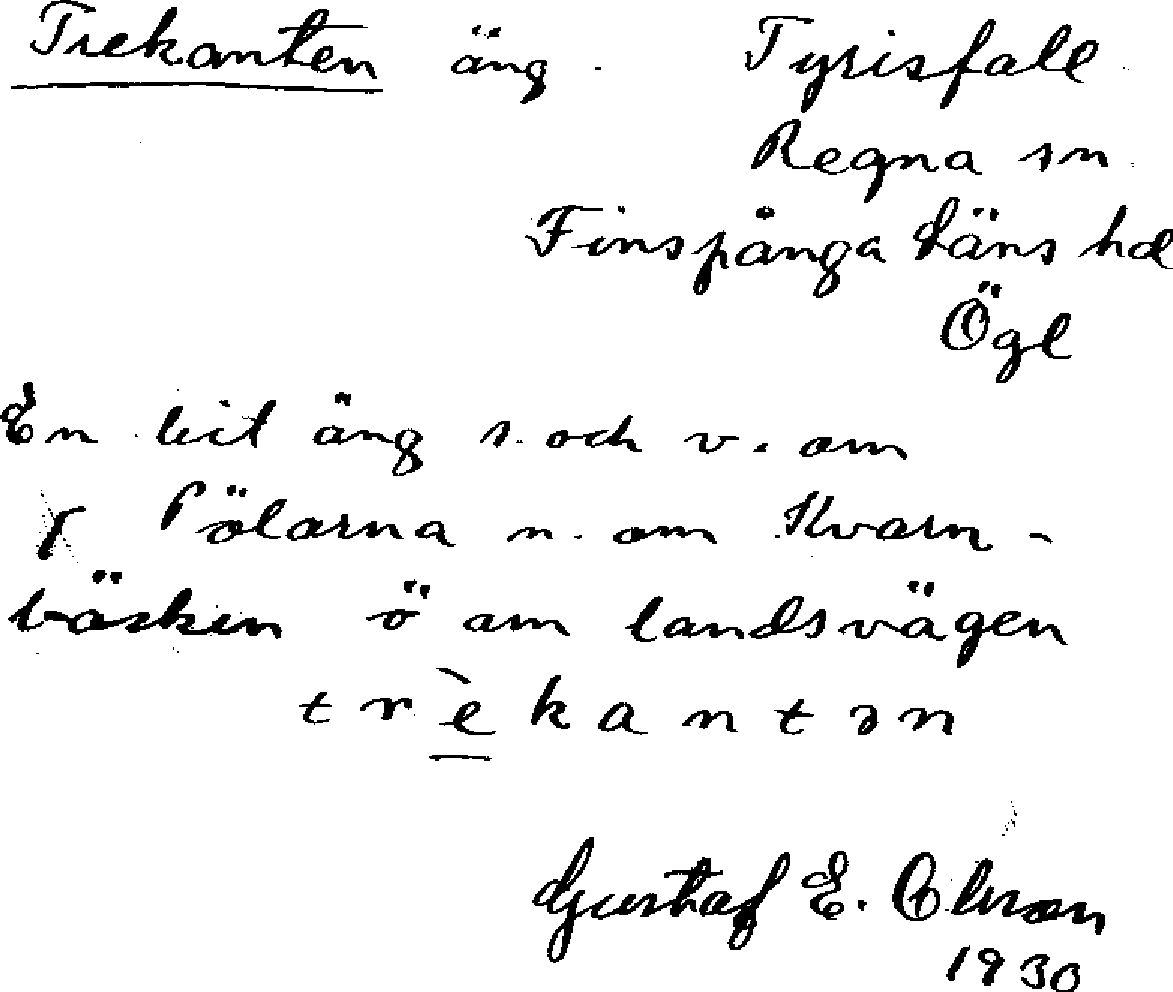 Trekanten äng. Tyrisfall
Regna sn.
Finspånga läns hd
Ögl
En lit äng s. och v. om
Pölarna n. om Kvarn-
bäcken ö om landsvägen
trèkantən
Gustaf E. Olsson
1930